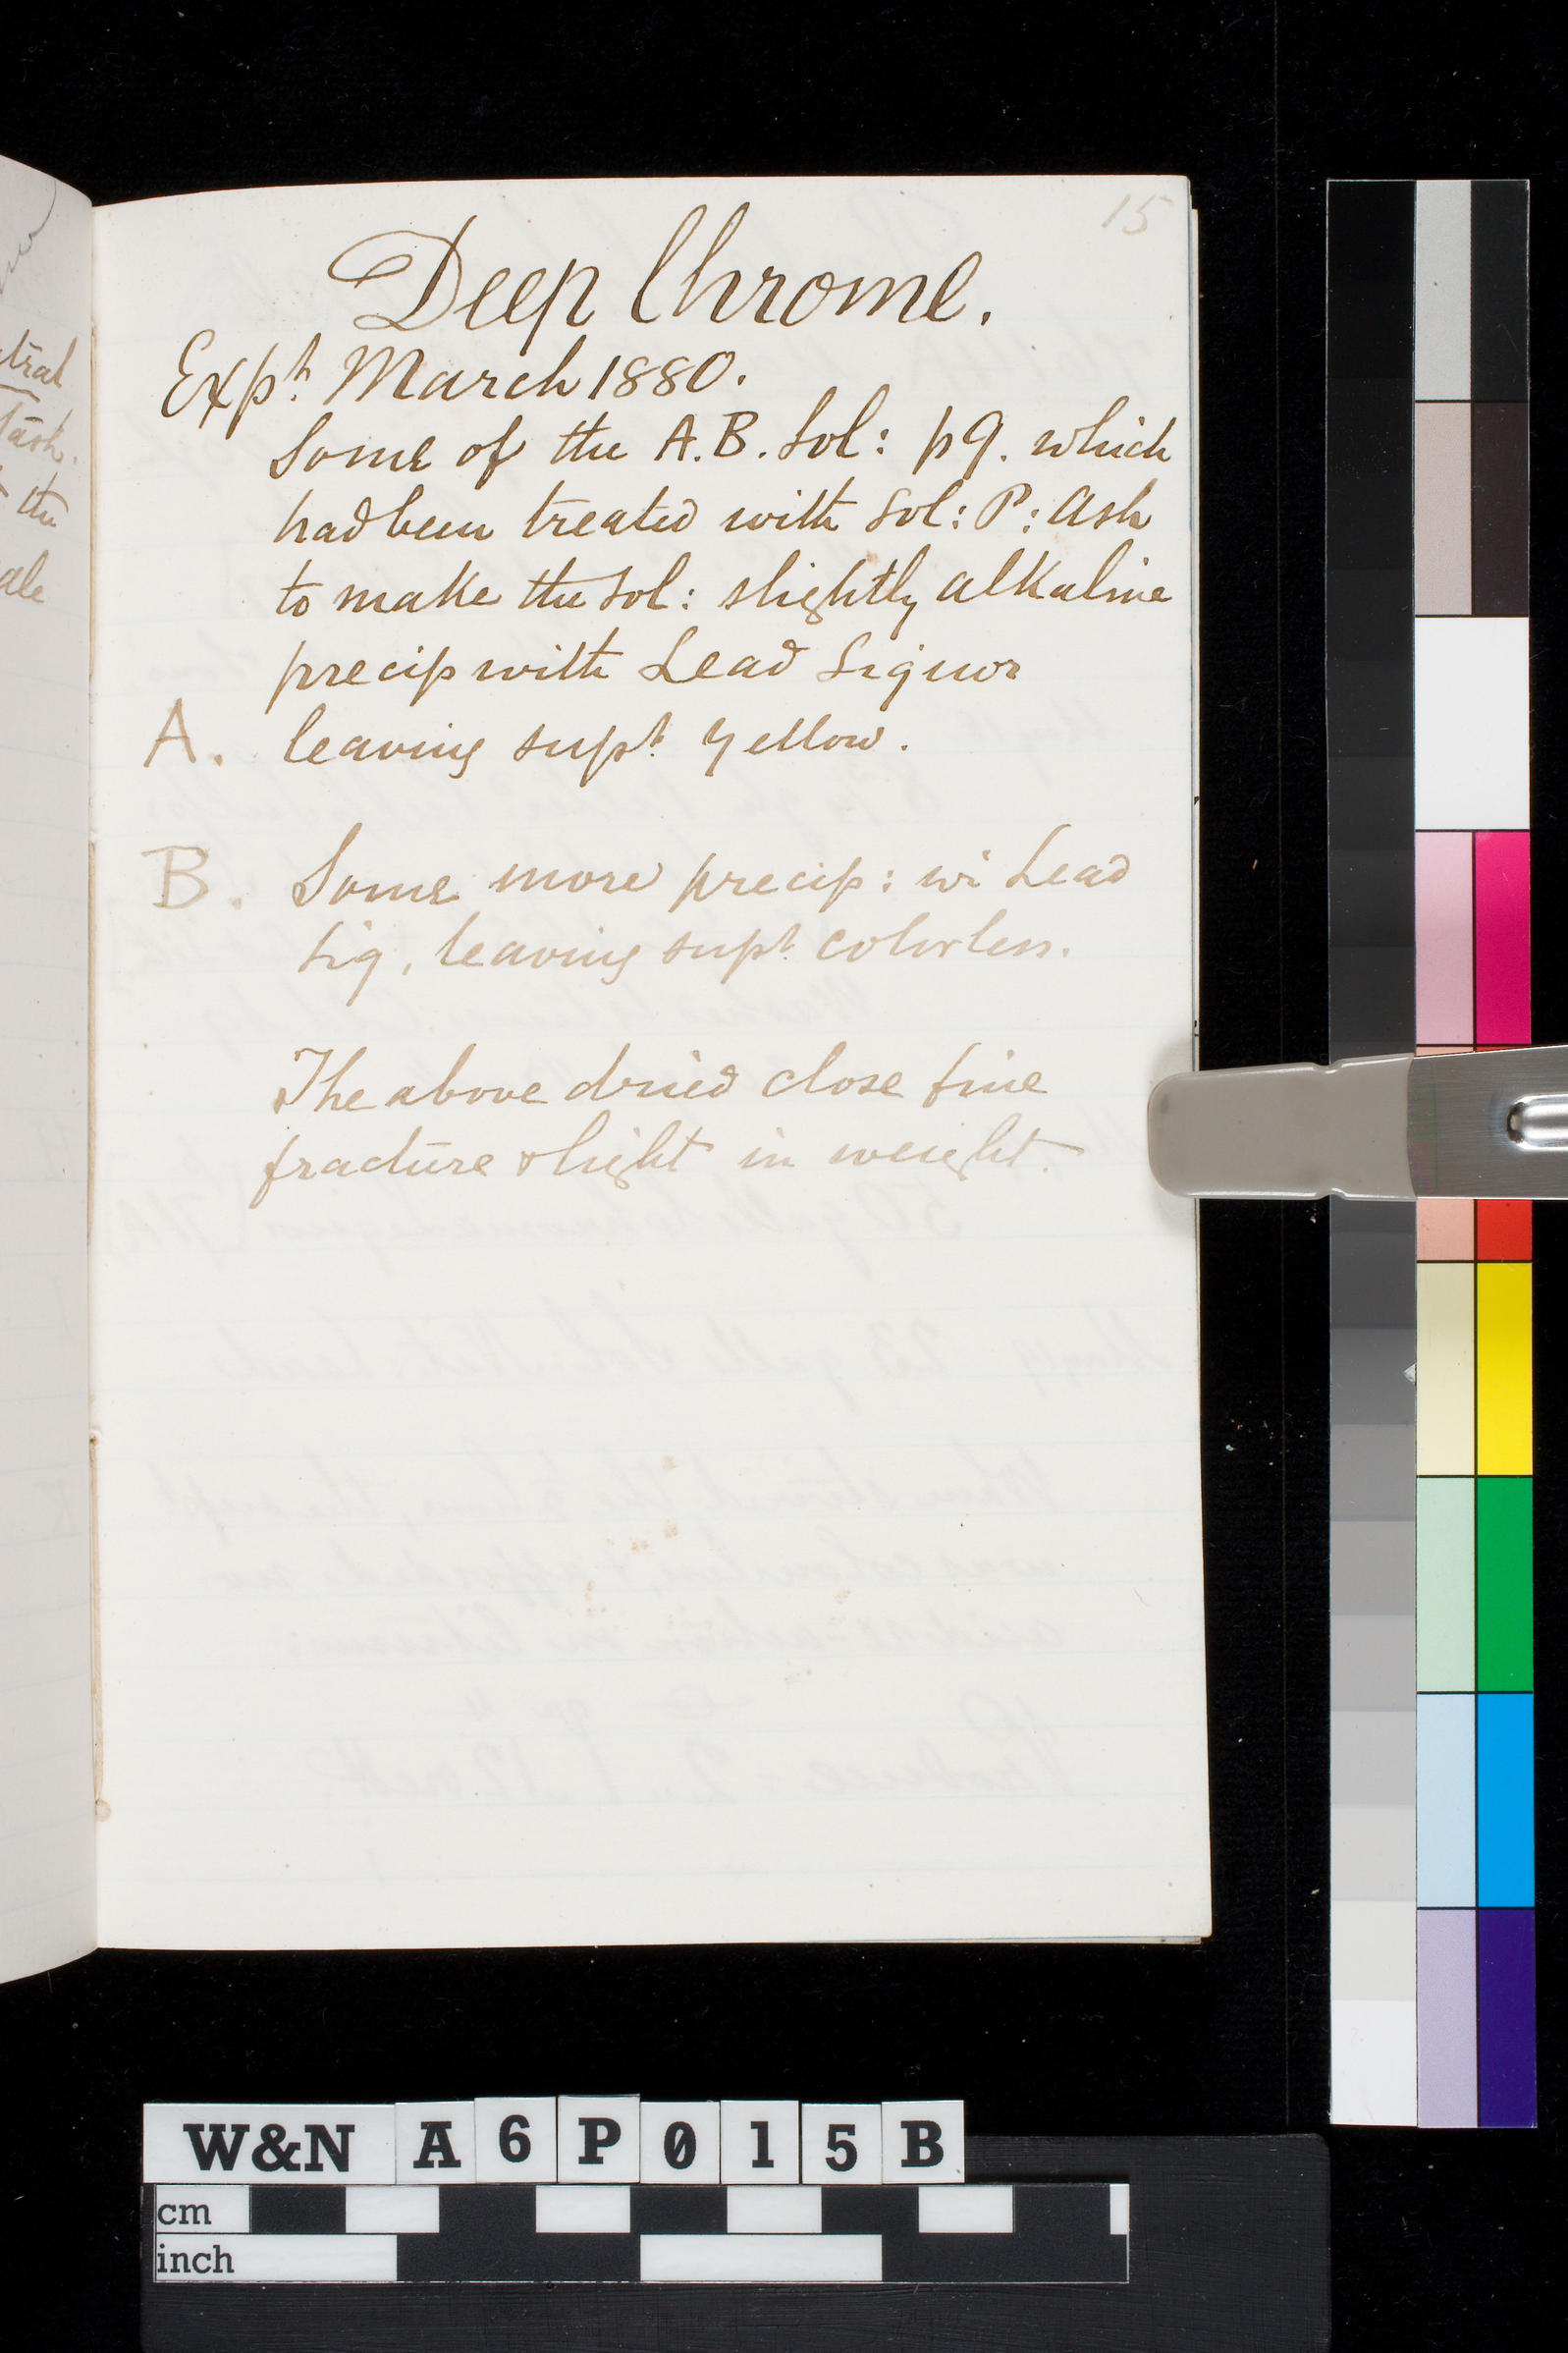 15
Deep Chrome.
Expt. March 1880.
Some of the A.B. Sol: p9. which
had been treated with Sol: P: Ash
to make the Sol: slightly alkaline
precip with Lead Liquor
A. leaving supt. yellow.
B. Some more precip: wi Lead
Liq, leaving supt. colorless.
The above dried close fine
fracture & light in weight.
tral
the
W&N A6P015B
cm
inch